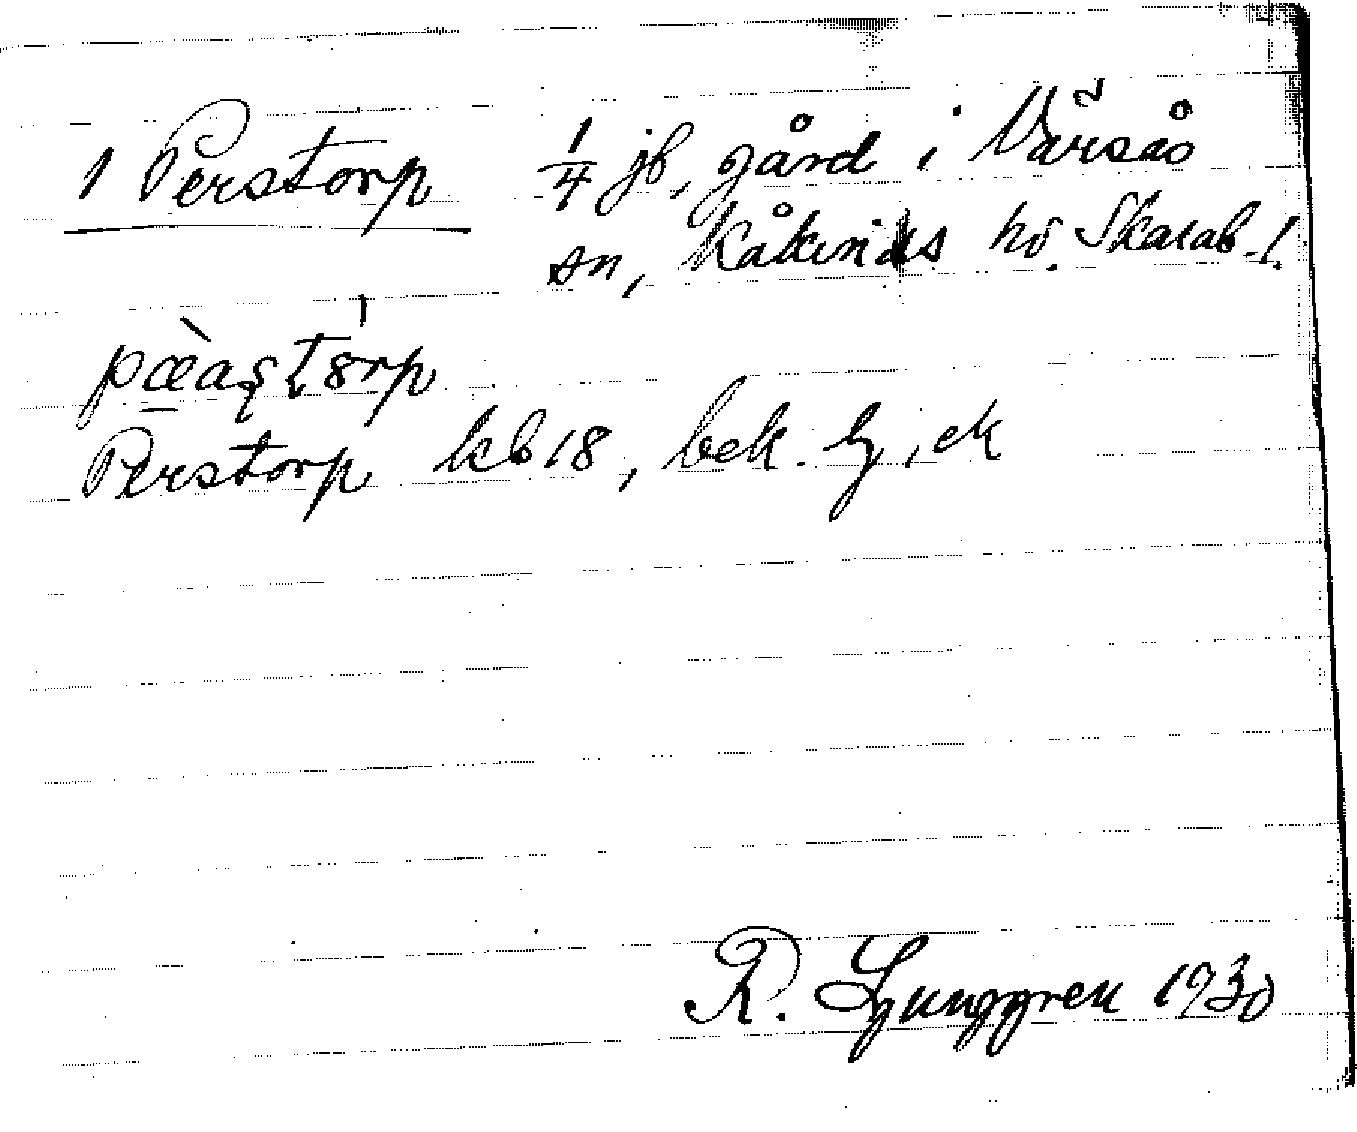 1 Perstorp 1/4 jb, gård i Värsås
sn, Kåkinds hd. Skarab. l.
pæ̀aʂtórp
Perstorp kb 18, bek. Lj, ek
R. Ljunggren 1930